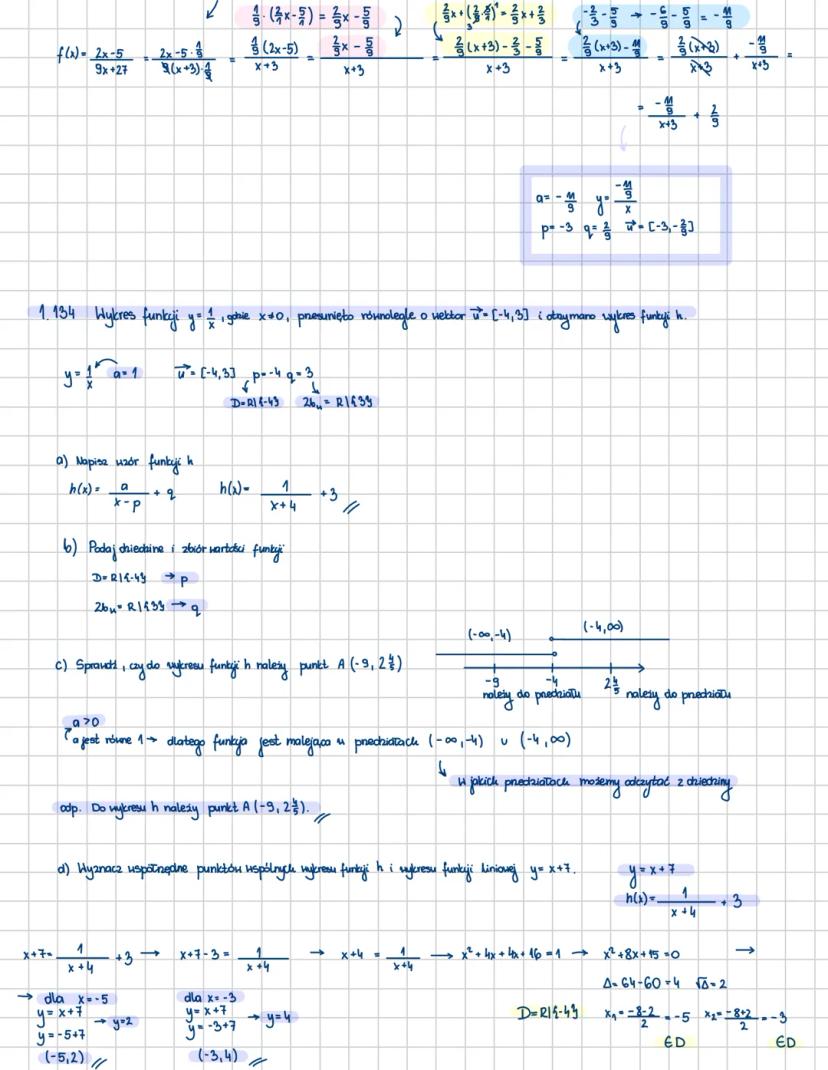 1/9 · (2/1 x - 5/1) = 2/9 x - 5/9
2/9 x + (2/9 · 3/1) = 2/9 x + 2/3
-2/3 - 5/9 → -6/9 - 5/9 = -11/9
f(x) = 2x-5 / 9x+27 = 2x-5 · 1/9 / 9(x+3) · 1/9 = 1/9 (2x-5) / x+3 = 2/9 x - 5/9 / x+3 = 2/9 (x+3) - 2/3 - 5/9 / x+3 = 2/9 (x+3) - 11/9 / x+3 = 2/9 (x+3) / x+3 + -11/9 / x+3 =
= -11/9 / x+3 + 2/9
a = -11/9 y = -11/9 / x
p = -3 q = 2/9 u⃗ = [-3, -2/9]
1.134 Wykres funkcji y = 1/x, gdzie x≠0, przesunięto równolegle o wektor u⃗ = [-4,3] i otrzymano wykres funkcji h.
y = 1/x a=1 u⃗ = [-4,3] p=-4 q=3
D=R\{-4} Zbw = R\{3}
a) Napisz wzór funkcji h
h(x) = a / x-p + q h(x) = 1 / x+4 + 3
b) Podaj dziedzinę i zbiór wartości funkcji
D=R\{-4} → p
Zbw = R\{3} → q
(-∞,-4) (-4,∞)
c) Sprawdź, czy do wykresu funkcji h należy punkt A (-9, 2 4/5)
-9 -4 2 4/5
należy do przedziału należy do przedziału
a>0
a jest równe 1 → dlatego funkcja jest malejąca w przedziałach (-∞,-4) ∪ (-4,∞)
w jakich przedziałach możemy odczytać z dziedziny
odp. Do wykresu h należy punkt A (-9, 2 4/5).
d) Wyznacz współrzędne punktów wspólnych wykresu funkcji h i wykresu funkcji liniowej y = x+7.
y = x+7
h(x) = 1 / x+4 + 3
x+7 = 1 / x+4 + 3 → x+7-3 = 1 / x+4 → x+4 = 1 / x+4 → x² + 4x + 4x + 16 = 1 → x² + 8x + 15 = 0 →
Δ = 64-60 = 4 √Δ = 2
→ dla x=-5
y = x+7
y = -5+7 → y=2
(-5,2)
dla x=-3
y = x+7
y = -3+7 → y=4
(-3,4)
D=R\{-4} x₁ = -8-2 / 2 = -5 x₂ = -8+2 / 2 = -3
∈D ∈D